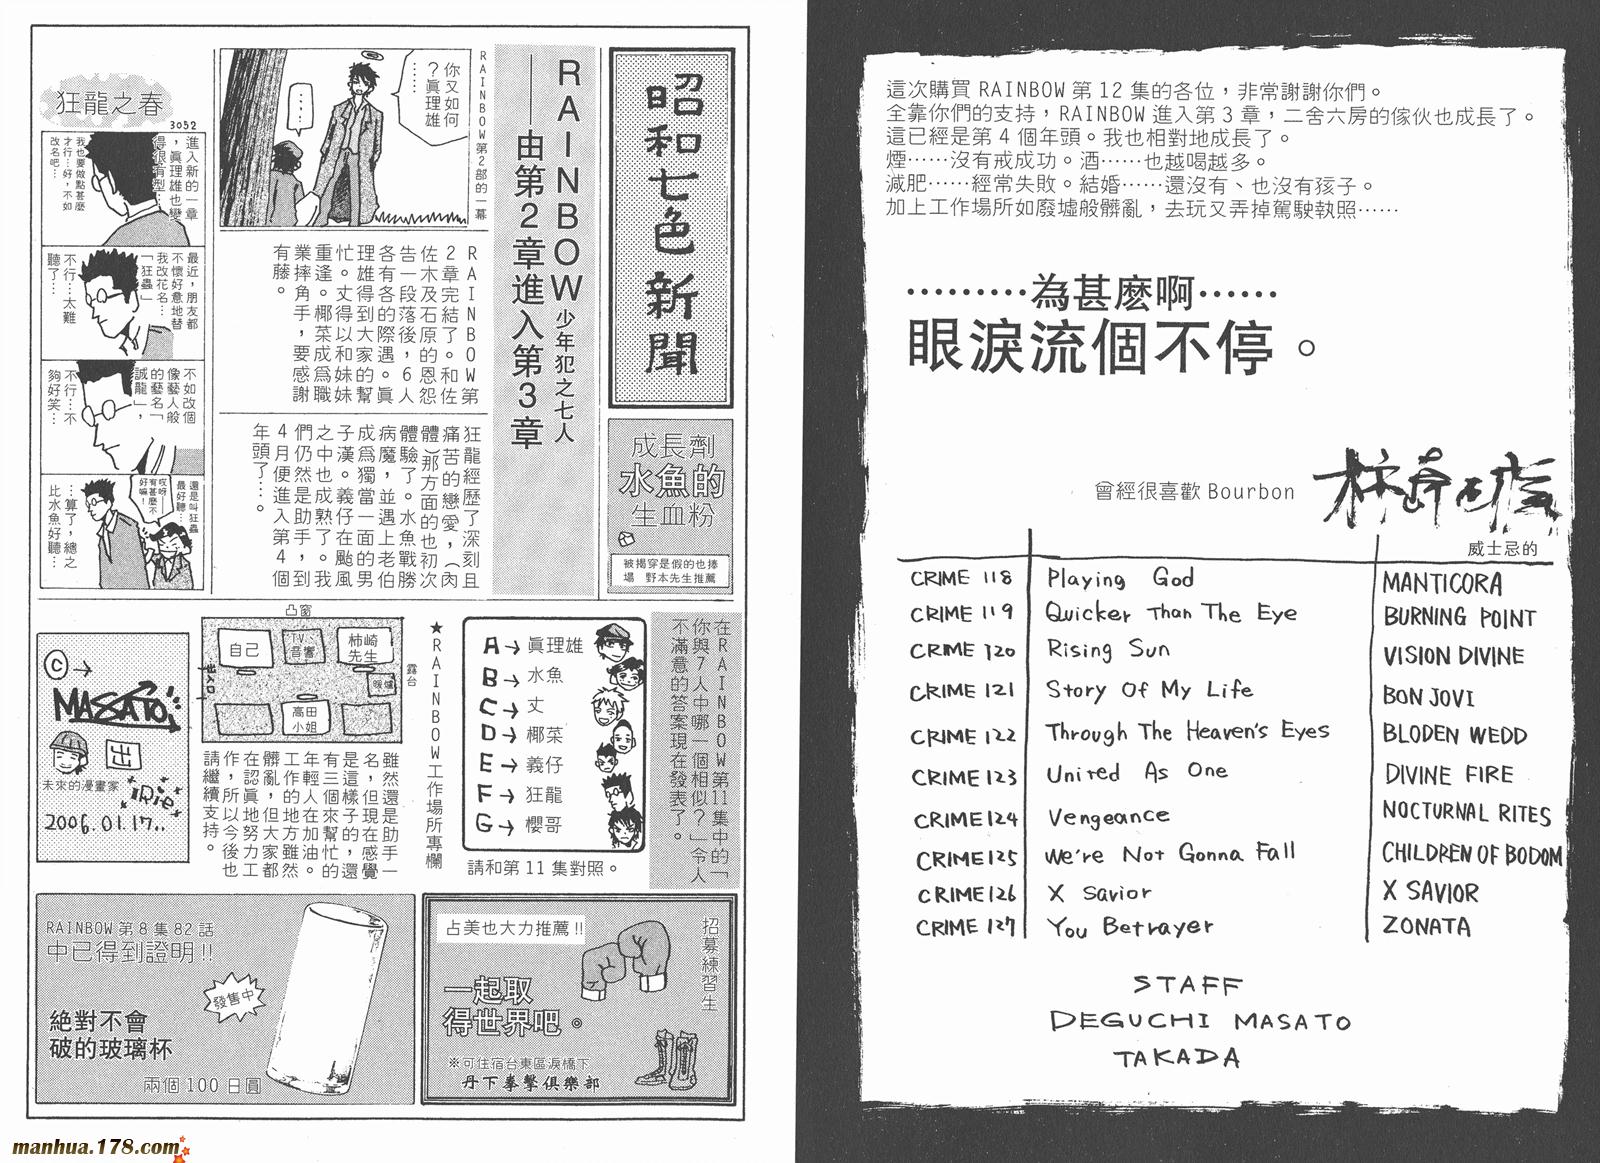 這次購買 RAINBOW 第 12 集的各位，非常謝謝你們。
全靠你們的支持，RAINBOW 進入第 3 章，二舍六房的傢伙也成長了。
這已經是第 4 個年頭。我也相對地成長了。
煙……沒有戒成功。酒……也越喝越多。
減肥……經常失敗。結婚……還沒有、也沒有孩子。
加上工作場所如廢墟般髒亂，去玩又弄掉駕駛執照……
………為甚麼啊……
眼淚流個不停。
曾經很喜歡 Bourbon
威士忌的
CRIME 118 Playing God MANTICORA
CRIME 119 Quicker Than The Eye BURNING POINT
CRIME 120 Rising Sun VISION DIVINE
CRIME 121 Story Of My Life BON JOVI
CRIME 122 Through The Heaven's Eyes BLODEN WEDD
CRIME 123 United As One DIVINE FIRE
CRIME 124 Vengeance NOCTURNAL RITES
CRIME 125 We're Not Gonna Fall CHILDREN OF BODOM
CRIME 126 X Savior X SAVIOR
CRIME 127 You Betrayer ZONATA
STAFF
DEGUCHI MASATO
TAKADA
昭和七色新聞
RAINBOW 少年犯之七人
——由第2章進入第3章
RAINBOW第2部的一幕
你又如何
？眞理雄
……
……
RAINBOW第
2章完結了。和佐
佐木及石原的恩怨
告一段落後，6人
各有各的際遇。眞
理雄得到大家的幫
忙。丈得以和妹妹
重逢。椰菜成爲職
業摔角手，要感謝
有藤。
狂龍經歷了深刻且
痛苦的戀愛，（肉
體）那方面的也初次
體驗了。水魚戰勝
病魔，並遇上老伯
成爲獨當一面的男
子漢。義仔在颱風
之中也成熟了。我
們仍然是助手，到
4月便進入第4個
年頭了…。
狂龍之春
3052
進入新的一章
，眞理雄也變
得很有型…
我也要做點甚麼
才行…好，不如
改名吧…
最近，朋友都
不懷好意地替
我改花名…
「狂蟲」
不行…太難
聽了…
不如改個
像藝人般
的藝名「
誠龍」，
不行…不
夠好笑…
還是叫狂蟲
最好聽…
哎呀…
有甚麼不
好嘛！
…算了，總之
比水魚好聽…
成長劑
水魚的
生血粉
被揭穿是假的也捧
場 野本先生推薦
在RAINBOW第11集中的「
你與7人中哪一個相似？」令人
不滿意的答案現在發表了。
A→眞理雄
B→水魚
C→丈
D→椰菜
E→義仔
F→狂龍
G→櫻哥
請和第 11 集對照。
★RAINBOW工作場所專欄
凸窗
自己
TV、
音響
柿崎
先生
暖爐
露台
出入口
高田
小姐
雖然還是助手一
名，但現在感覺
是這樣子的，還
有三個來幫忙的
年輕人在加油。
工作的地方雖然
髒亂，但大家都
在認眞地努力工
作，所以今後也
請繼續支持。
©→
MASATO
出
未來的漫畫家
2006.01.17..
RAINBOW 第 8 集 82 話
中已得到證明!!
發售中
絕對不會
破的玻璃杯
兩個 100 日圓
占美也大力推薦!!
招募練習生
一起取
得世界吧。
※可住宿台東區淚橋下
丹下拳擊俱樂部
manhua.178.com